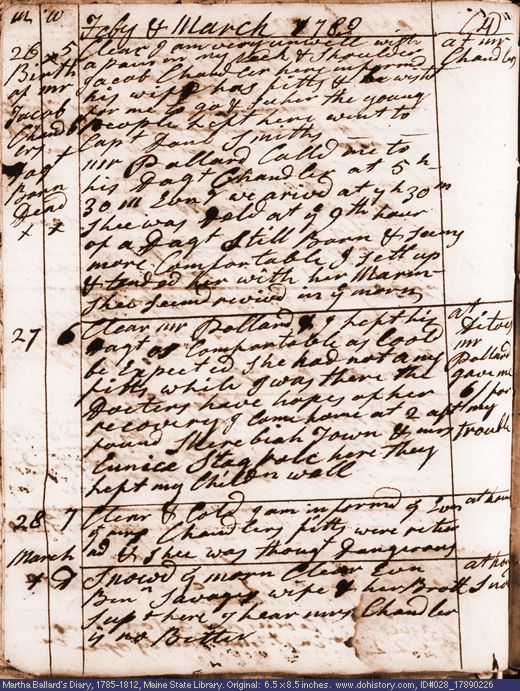 m w Feby & March 1789 (4)
26 5 Clear I am very unwell with at mr
Birth a pain in my back & Shoulder Chandlers
of mr Jacob Chandler here inform'd
Jacob his wife has fitts & he wisht
Chandlers for me to go & see her the young
people kept here went to
Dagt Cap Danl Smiths
Born mr Pollard Calld me to
Dead his Dagt Chandler at 5 h
x x 30 m Evng we arivd at 7 h 30 m
Shee was Deld at ye 9th hour
of a Dagt Still Born & Seemg
more Comfortable I sett up
& tended her with her Marm
Shee Seemd revivd in ye morn
27 6 Clear mr Pollard & I left his at
Dagt as Comfortable as Could Ditoes
be Expected She had not any mr
fitts while I was there the Pollard
Docters have hopes of her gave me
recovery I Came home at 2 aft 6/ for
found Sherebiah Town & mrs my
Eunice Stagpole here they trouble
kept my Children well
28 7 Clear & Cold I am informd ys Evn at home
yt mrs Chandlers fitts were returnd
ad & Shee was thougt Dangerous
March
x D Snowd ye morn Clear Evn at home
Benn Savage wife & her Broth Snow
Supt here I hear mrs Chandler
is no Better
Martha Ballard's Diary, 1785-1812, Maine State Library. Original: 6.5 x 8.5 inches. www.dohistory.com, ID#028_17890226